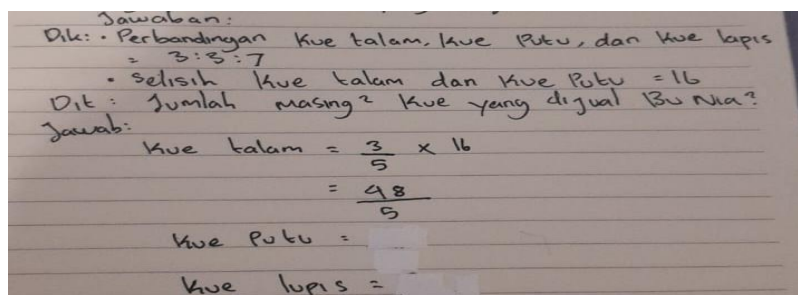 Jawaban:
Dik: • Perbandingan kue talam, kue Putu, dan kue lapis
= 3:5:7
• Selisih kue talam dan kue Putu = 16
Dit : Jumlah masing² kue yang dijual Bu Nia?
Jawab:
kue talam = 3/5 × 16
= 48/5
kue Putu =
kue lupis =